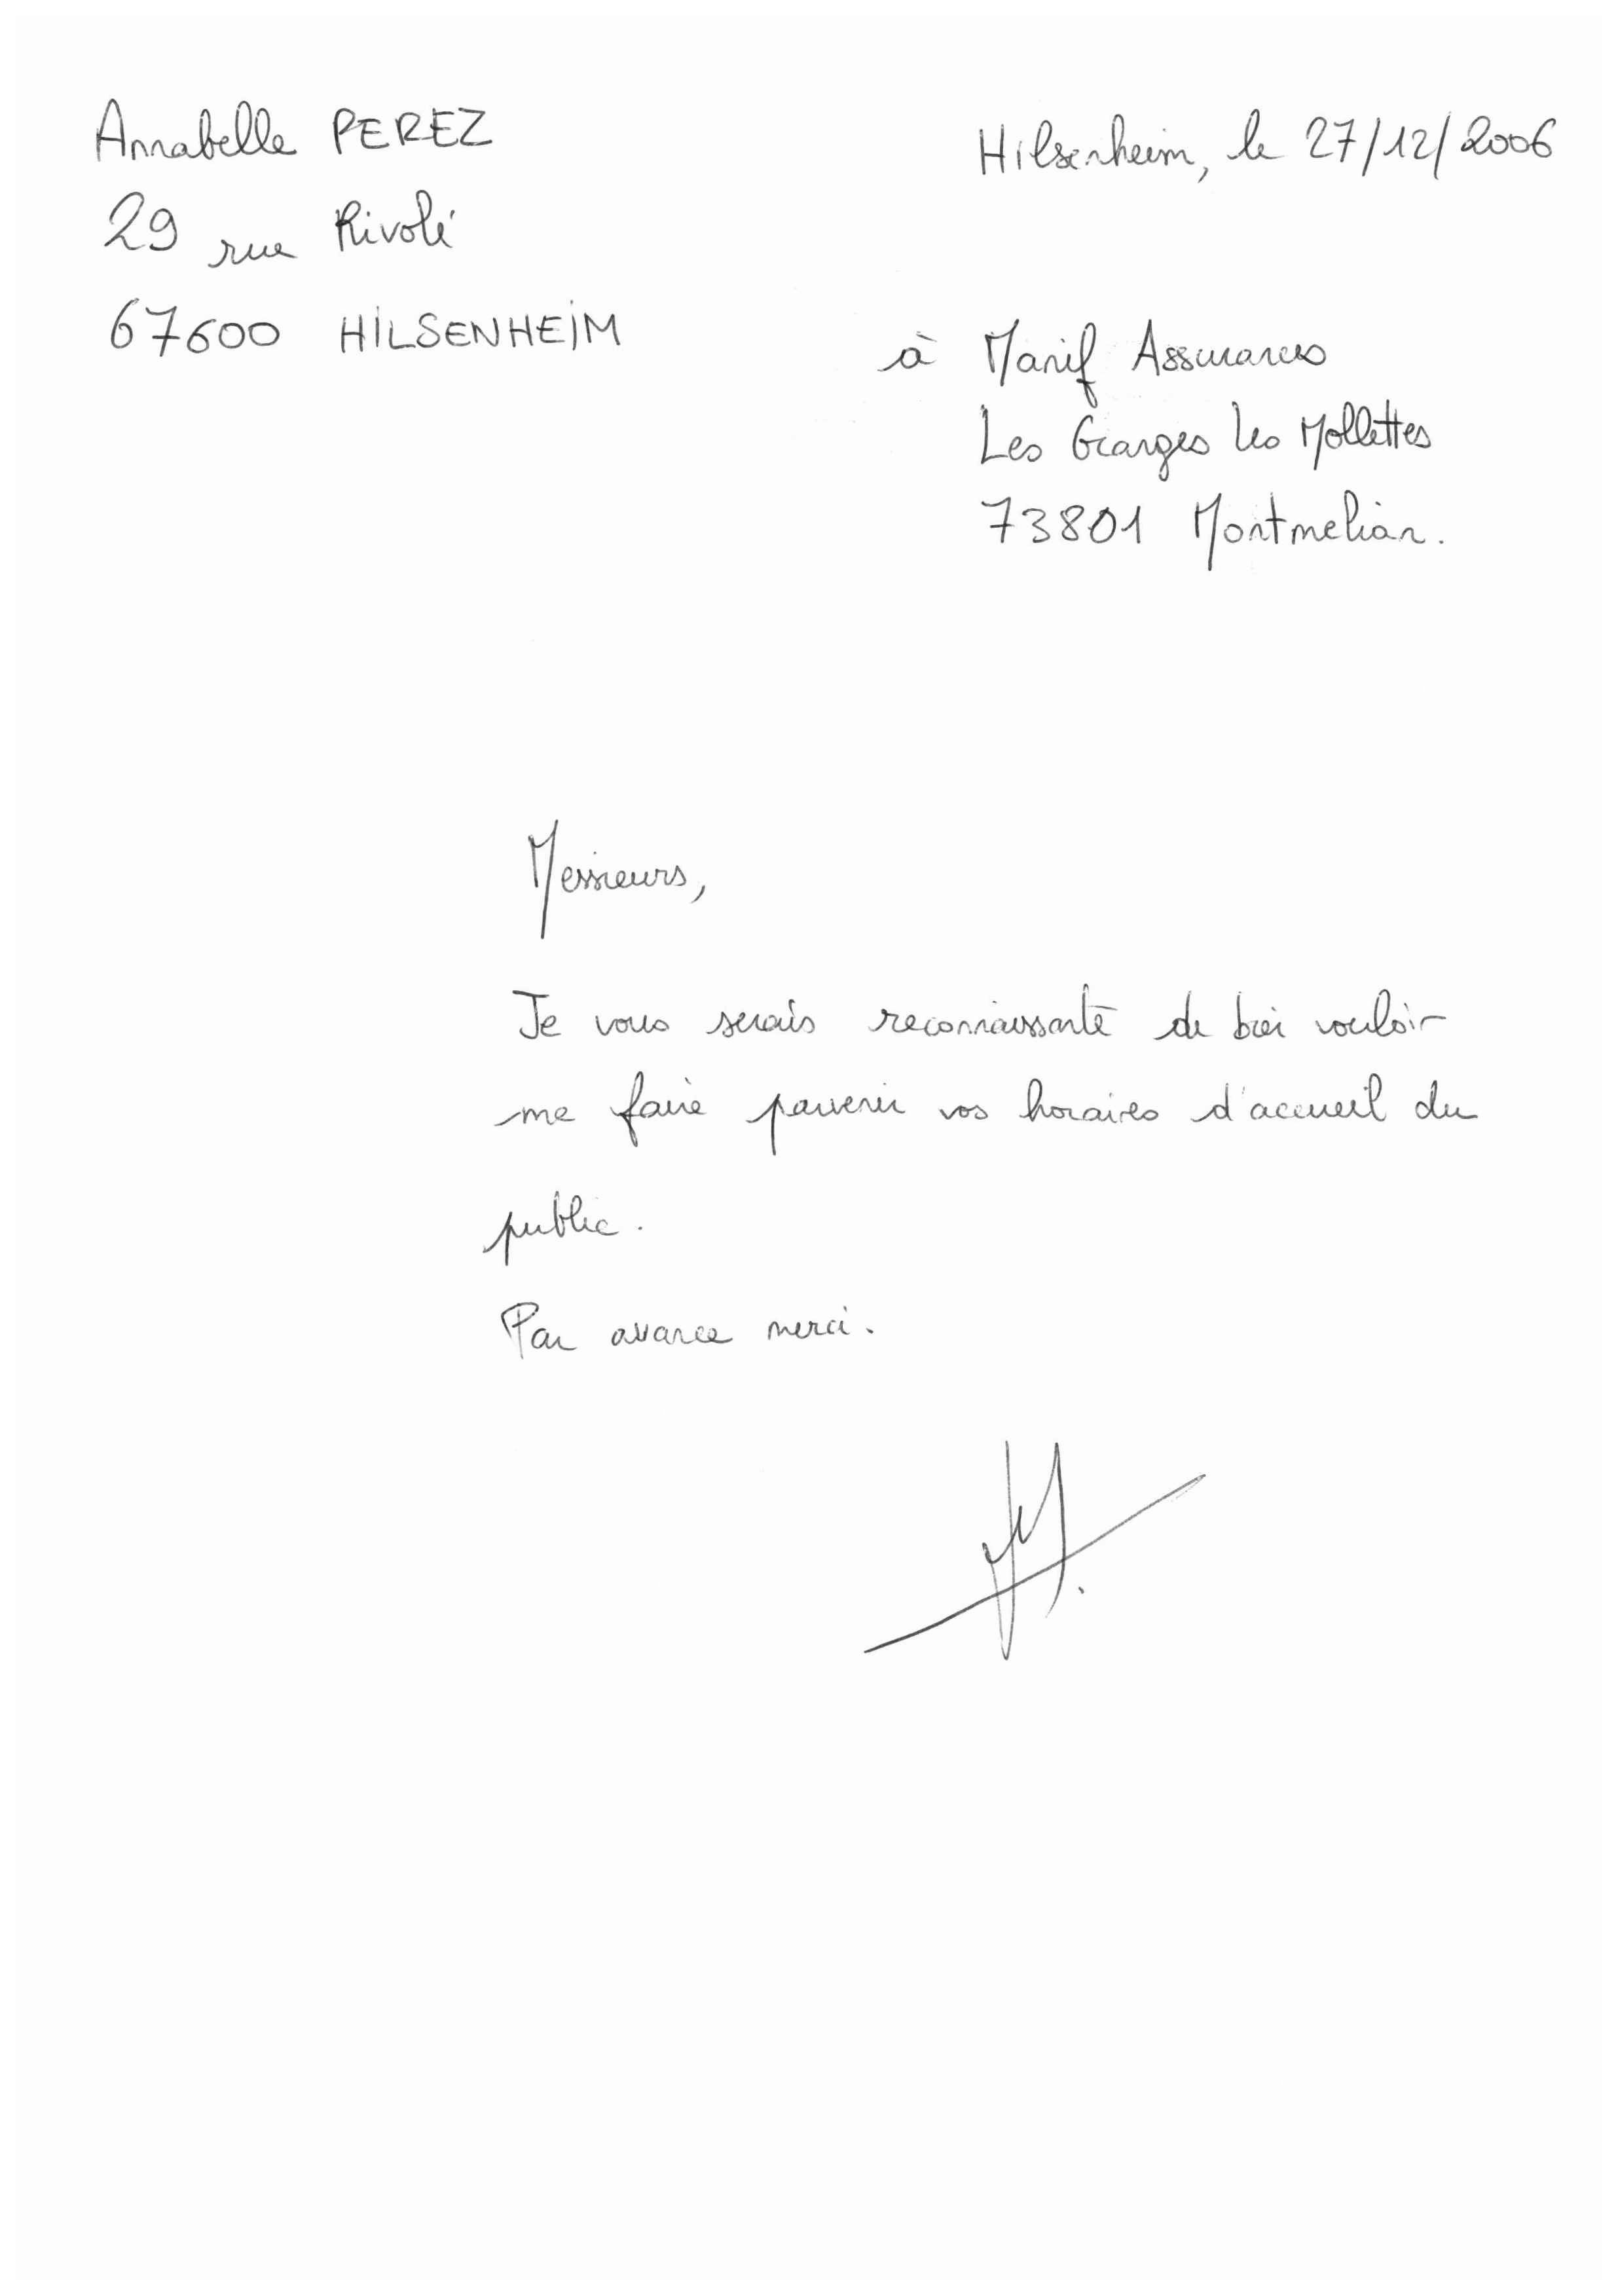 Annabelle PEREZ
29 rue Rivoli
67600 HILSENHEIM
Hilsenheim, le 27/12/2006
à Manif Assurances
Les Granges les Mollettes
73801 Montmelian.
Messieurs,
Je vous serais reconnaissante de bien vouloir
me faire parvenir vos horaires d'accueil du
public.
Par avance merci.